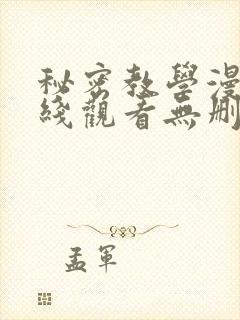 秘密教學漫
綫觀看無刪
孟軍